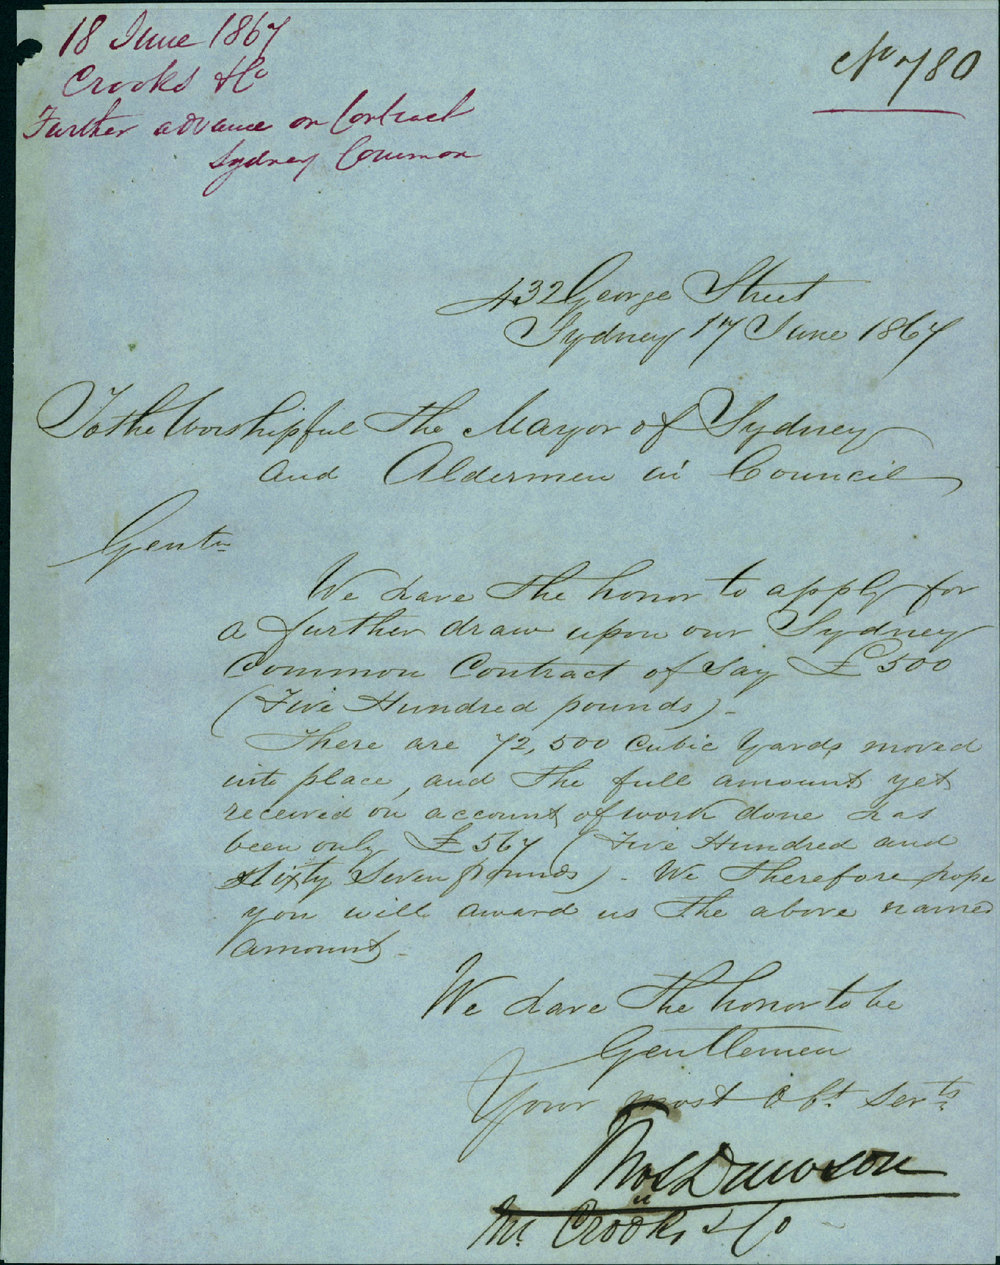 18 June 1867
Crooks & Co
Further advance on Contract
Sydney Common
No 780
432 George Street
Sydney 17 June 1867
To the Worshipful the Mayor of Sydney
and Aldermen in Council
Gentn
We have the honor to apply for
a further draw upon our Sydney
Common Contract of say £500
(Five Hundred pounds).-
There are 72,500 Cubic Yards moved
into place, and the full amount yet
received on account of work done has
been only £567 (Five Hundred and
Sixty Seven pounds). We therefore hope
you will award us the above named
amount.-
We have the honor to be
Gentlemen
Your most Obt. Servts.
Thos Dawson
Crooks & Co